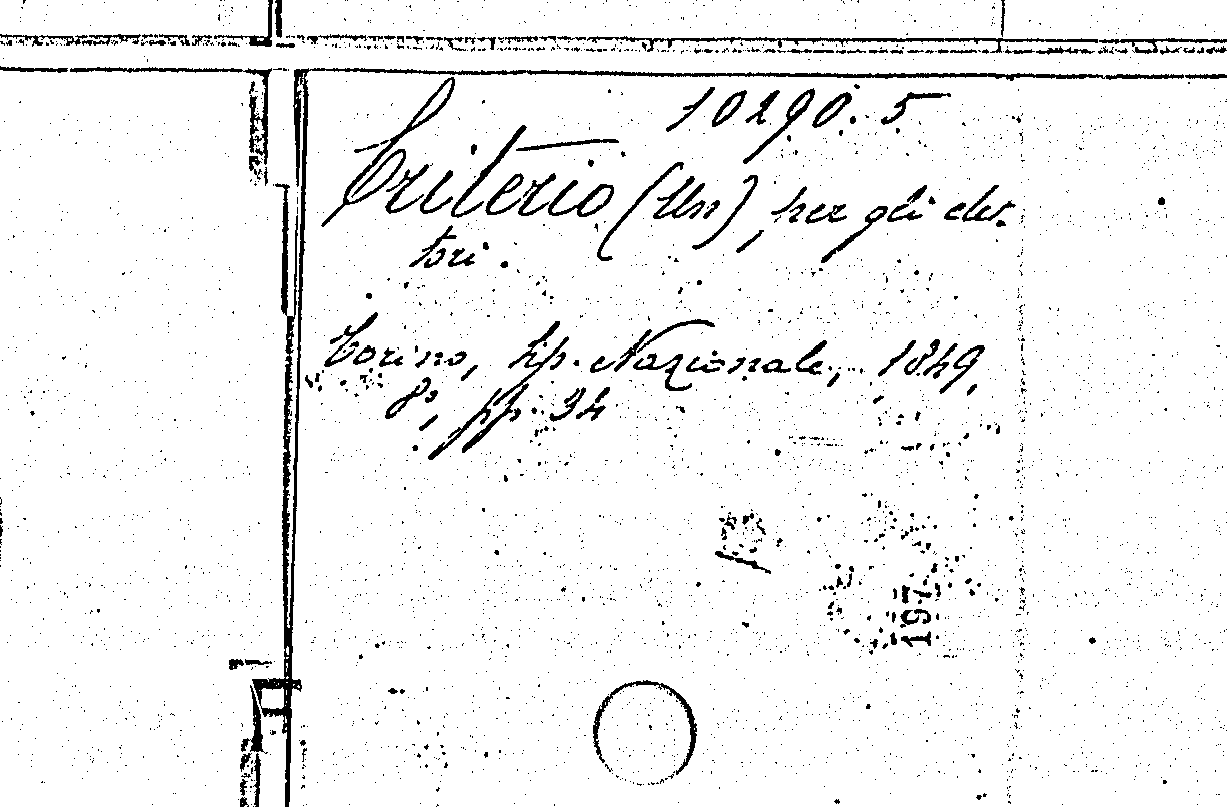 10290.5
Criterio (Un), per gli elet-
tori.
Torino, tip. Nazionale, 1849,
8°, pp. 34
197